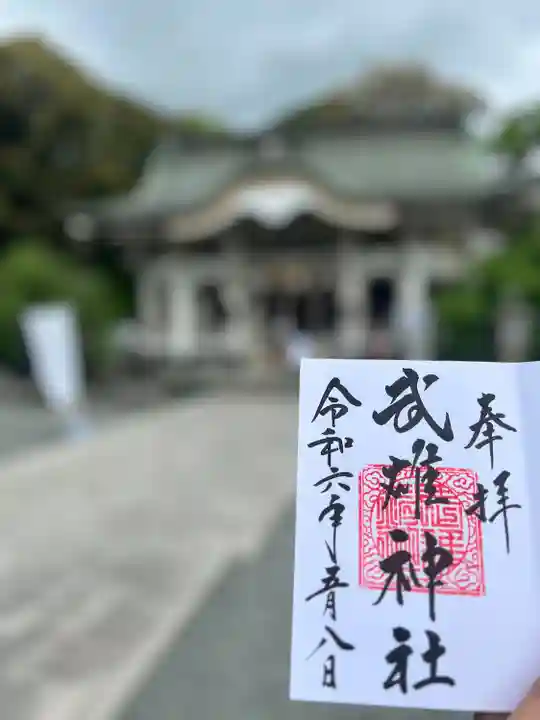 奉拝
武雄神社
令和六年五月八日